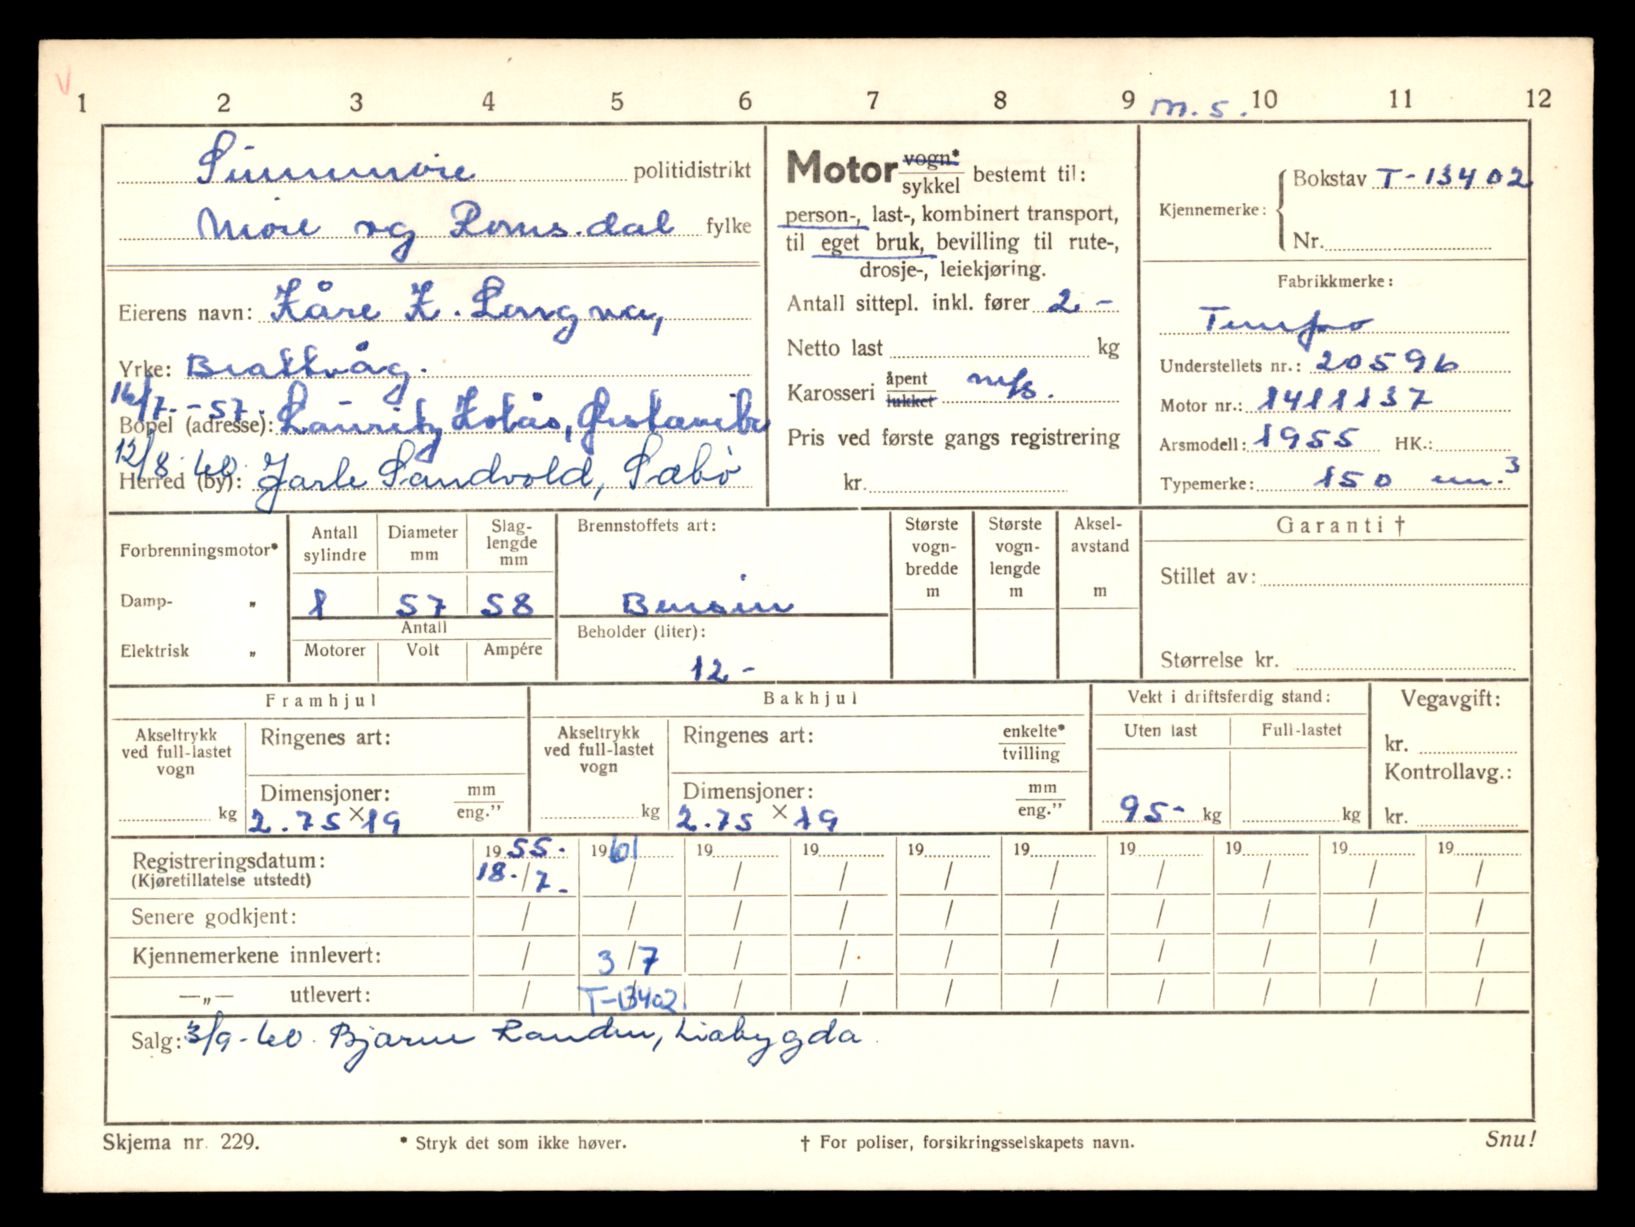 V
1 2 3 4 5 6 7 8 9 10 11 12
m.s.
Sunnmøre politidistrikt
Møre og Romsdal fylke
Eierens navn: Kåre K. Longva,
Yrke: Brattvåg.
16/7.-57.
Bopel (adresse): Lauritz
12/8.60.
Herred (by): Jarle Sandvold, Sæbø
Motor vogn* sykkel bestemt til:
person-, last-, kombinert transport,
til eget bruk, bevilling til rute-,
drosje-, leiekjøring.
Antall sittepl. inkl. fører 2.-
Netto last kg
Karosseri åpent lukket
Pris ved første gangs registrering
kr.
Kjennemerke: Bokstav T-13402
Nr.
Fabrikkmerke:
Tempo
Understellets nr.: 20596
Motor nr.: 1411137
Årsmodell: 1955 HK.:
Typemerke: 150 cm.3
Forbrenningsmotor*
Damp- „
Elektrisk „
Antall sylindre
Diameter mm
Slag-lengde mm
1 57 58
Antall
Motorer Volt Ampére
Brennstoffets art:
Bensin
Beholder (liter):
12-
Største vogn-bredde m
Største vogn-lengde m
Aksel-avstand m
Garanti †
Stillet av:
Størrelse kr.
Framhjul
Akseltrykk ved full-lastet vogn
kg
Ringenes art:
Dimensjoner: mm eng.”
2.75×19
Bakhjul
Akseltrykk ved full-lastet vogn
kg
Ringenes art: enkelte* tvilling
Dimensjoner: mm eng.”
2.75×19
Vekt i driftsferdig stand:
Uten last Full-lastet
95- kg kg
Vegavgift:
kr.
Kontrollavg.:
kr.
Registreringsdatum: 1955. 1961 19 19 19 19 19 19 19 19
(Kjøretillatelse utstedt) 18./7. / / / / / / / / /
Senere godkjent: / / / / / / / / / /
Kjennemerkene innlevert: / 3/7 / / / / / / / /
—„— utlevert: / T-13402 / / / / / / / /
Salg: 3/9-60. Bjarne Randen, Liabygda
Skjema nr. 229. * Stryk det som ikke høver. † For poliser, forsikringsselskapets navn. Snu!